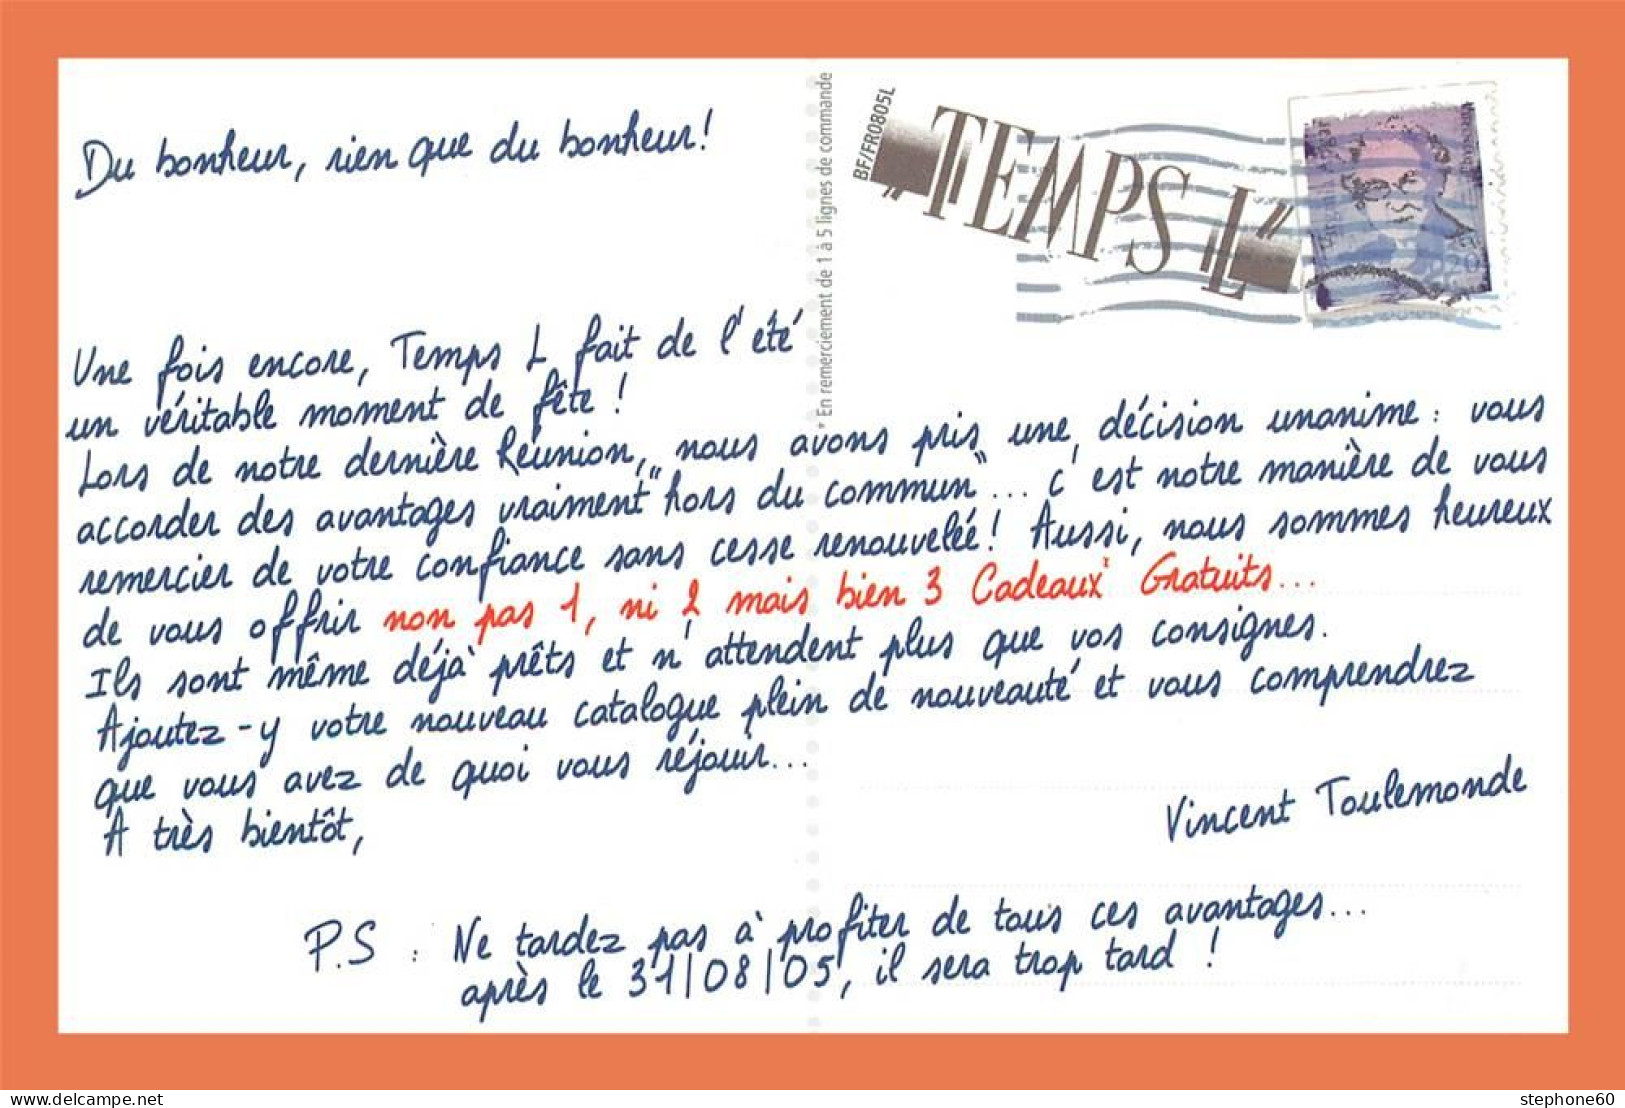 Du bonheur, rien que du bonheur!
* En remerciement de 1 à 5 lignes de commande
BF/FR0805L
"TEMPS L"
Une fois encore, Temps L fait de l'été
un véritable moment de fête !
Lors de notre dernière Réunion, nous avons pris une décision unanime : vous
accorder des avantages vraiment "hors du commun"... c'est notre manière de vous
remercier de votre confiance sans cesse renouvelée! Aussi, nous sommes heureux
de vous offrir non pas 1, ni 2 mais bien 3 Cadeaux* Gratuits...
Ils sont même déjà prêts et n'attendent plus que vos consignes.
Ajoutez-y votre nouveau catalogue plein de nouveauté et vous comprendrez
que vous avez de quoi vous réjouir...
A très bientôt,
Vincent Toulemonde
P.S : Ne tardez pas à profiter de tous ces avantages...
après le 31/08/05, il sera trop tard !
delcampe.net
stephone60